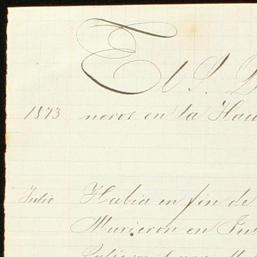 El S. D
1873 neros en la Hac
Julio Habia en fin de
Murieron en Ju